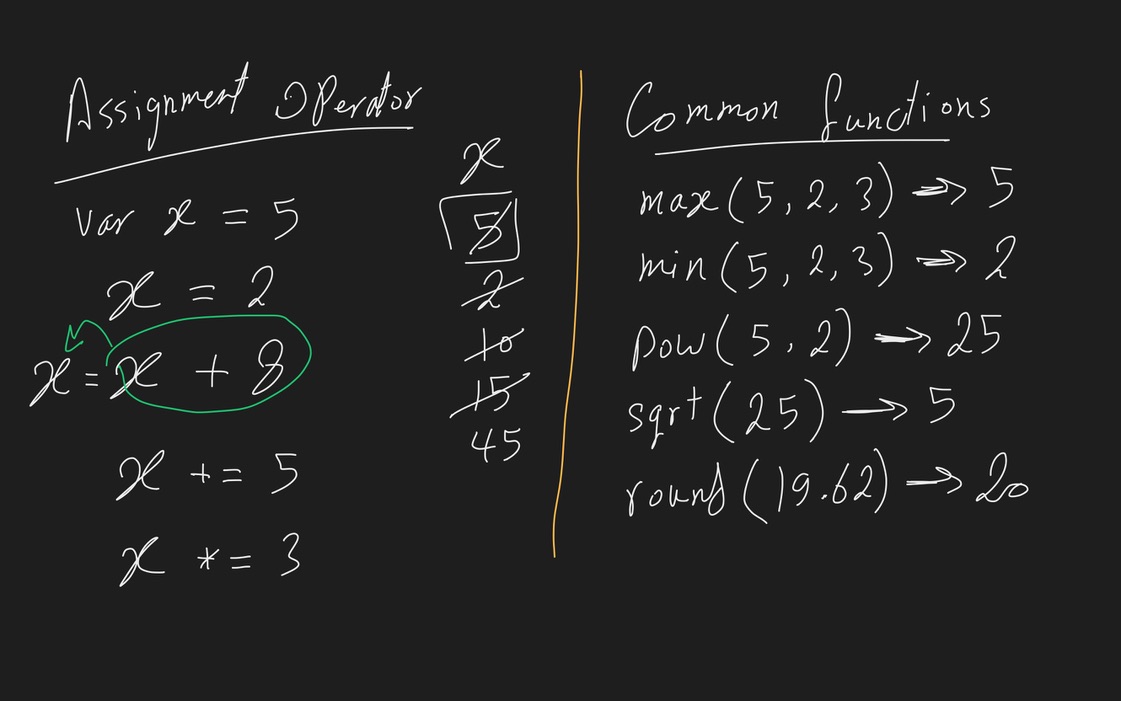 Assignment Operator
var x = 5
x = 2
x = x + 8
x += 5
x *= 3
x
5
2
10
15
45
Common functions
max(5, 2, 3) → 5
min(5, 2, 3) → 2
pow(5, 2) → 25
sqrt(25) → 5
round(19.62) → 20